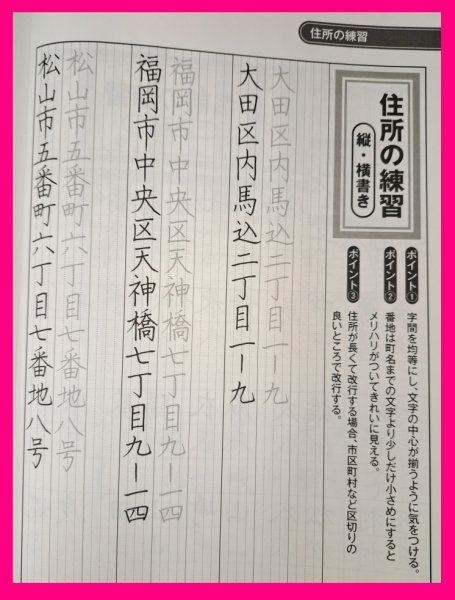 住所の練習
住所の練習
縦・横書き
ポイント① 字間を均等にし、文字の中心が揃うように気をつける。
ポイント② 番地は町名までの文字より少しだけ小さめにすると
メリハリがついてきれいに見える。
ポイント③ 住所が長くて改行する場合、市区町村など区切りの
良いところで改行する。
大田区内馬込二丁目一ー九
大田区内馬込二丁目一ー九
福岡市中央区天神橋七丁目九ー一四
福岡市中央区天神橋七丁目九ー一四
松山市五番町六丁目七番地八号
松山市五番町六丁目七番地八号